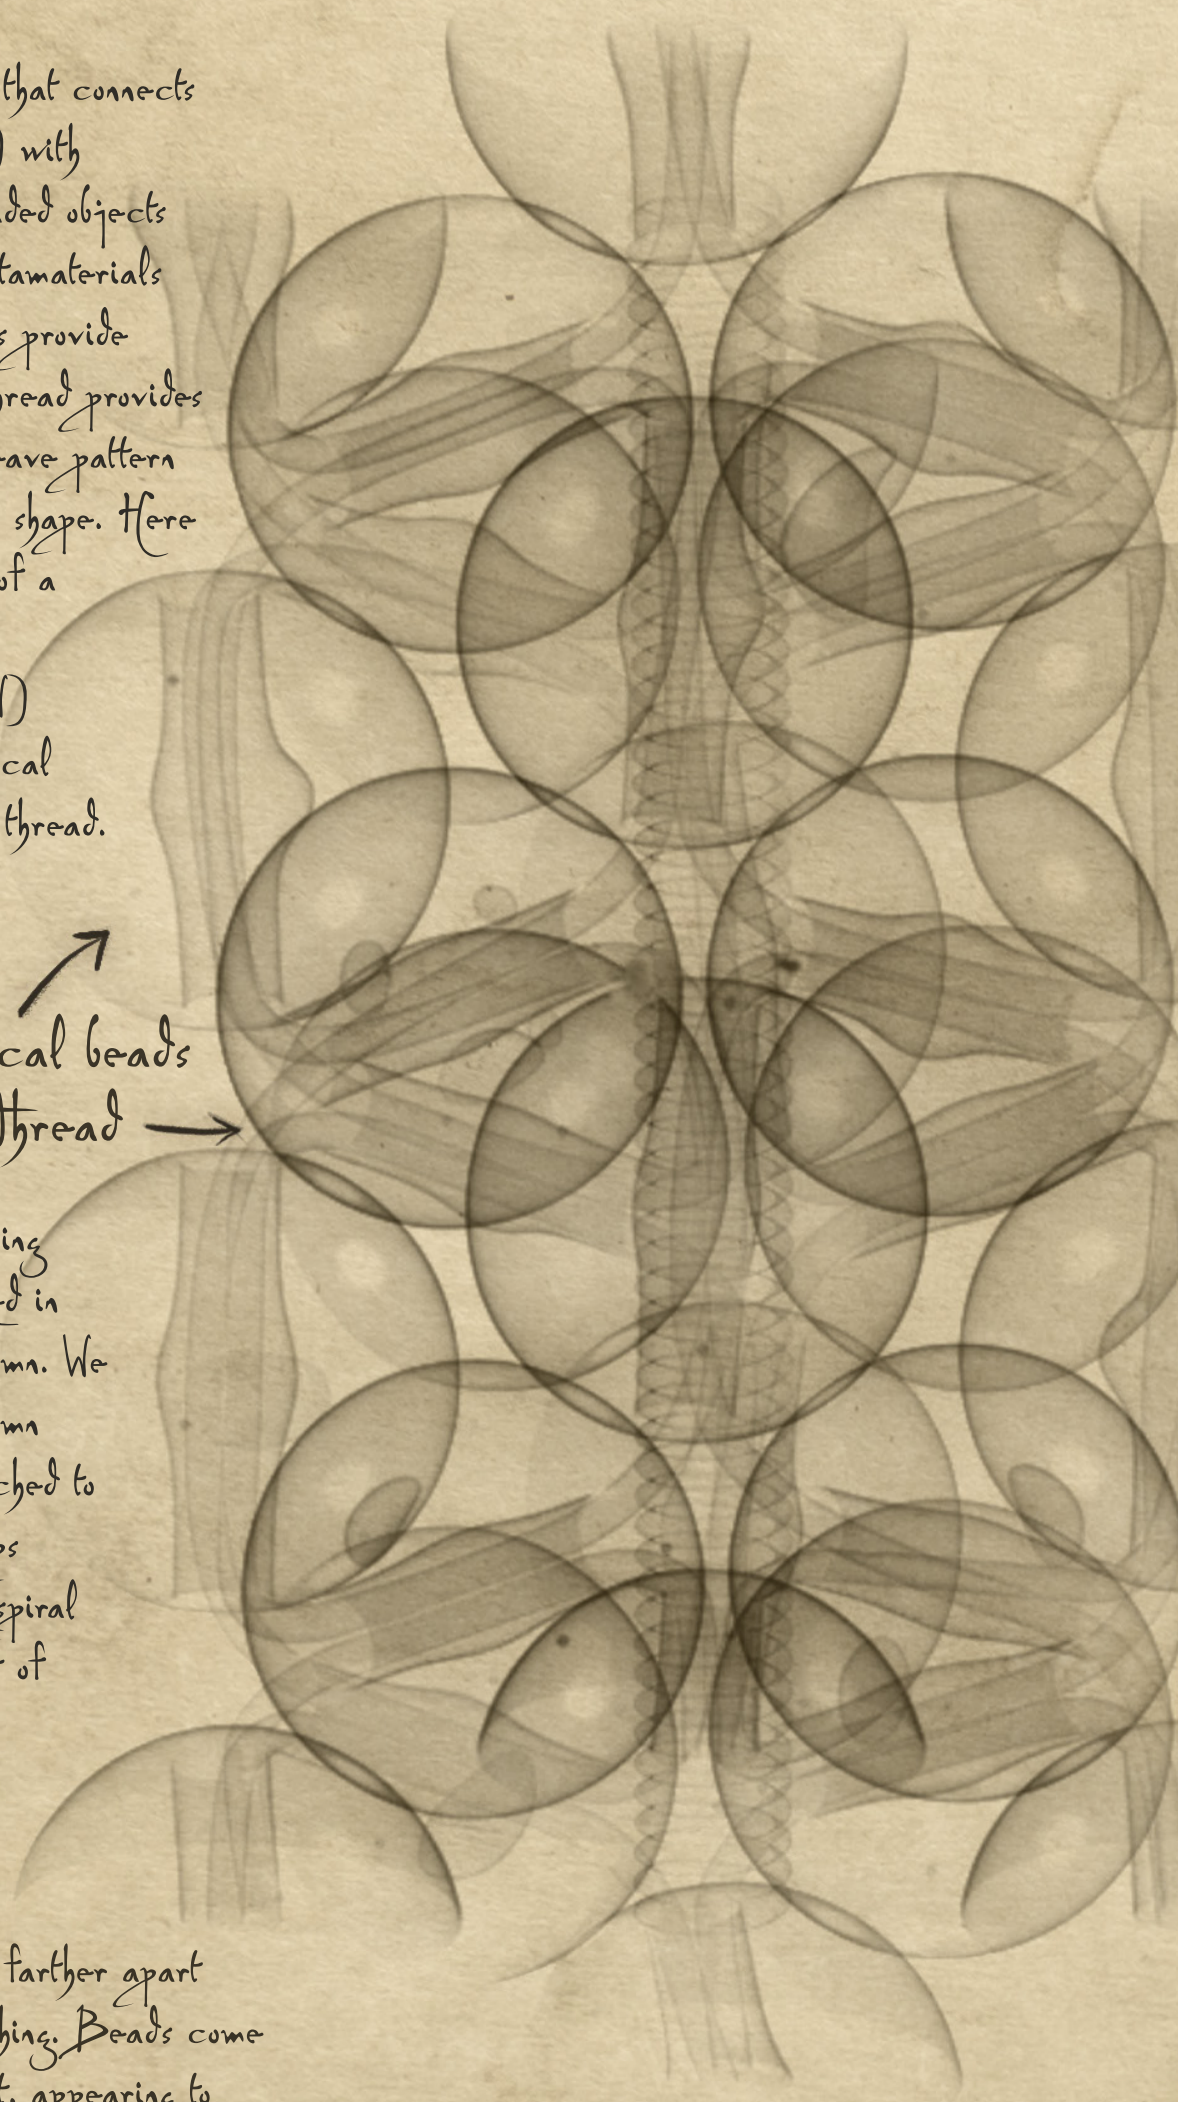 that connects
) with
ded objects
tamaterials
s provide
read provides
ave pattern
shape. Here
of a
D
cal
thread.
cal beads
thread
ing
d in
mn. We
mn
ched to
ps
spiral
of
farther apart
hing. Beads come
t, appearing to